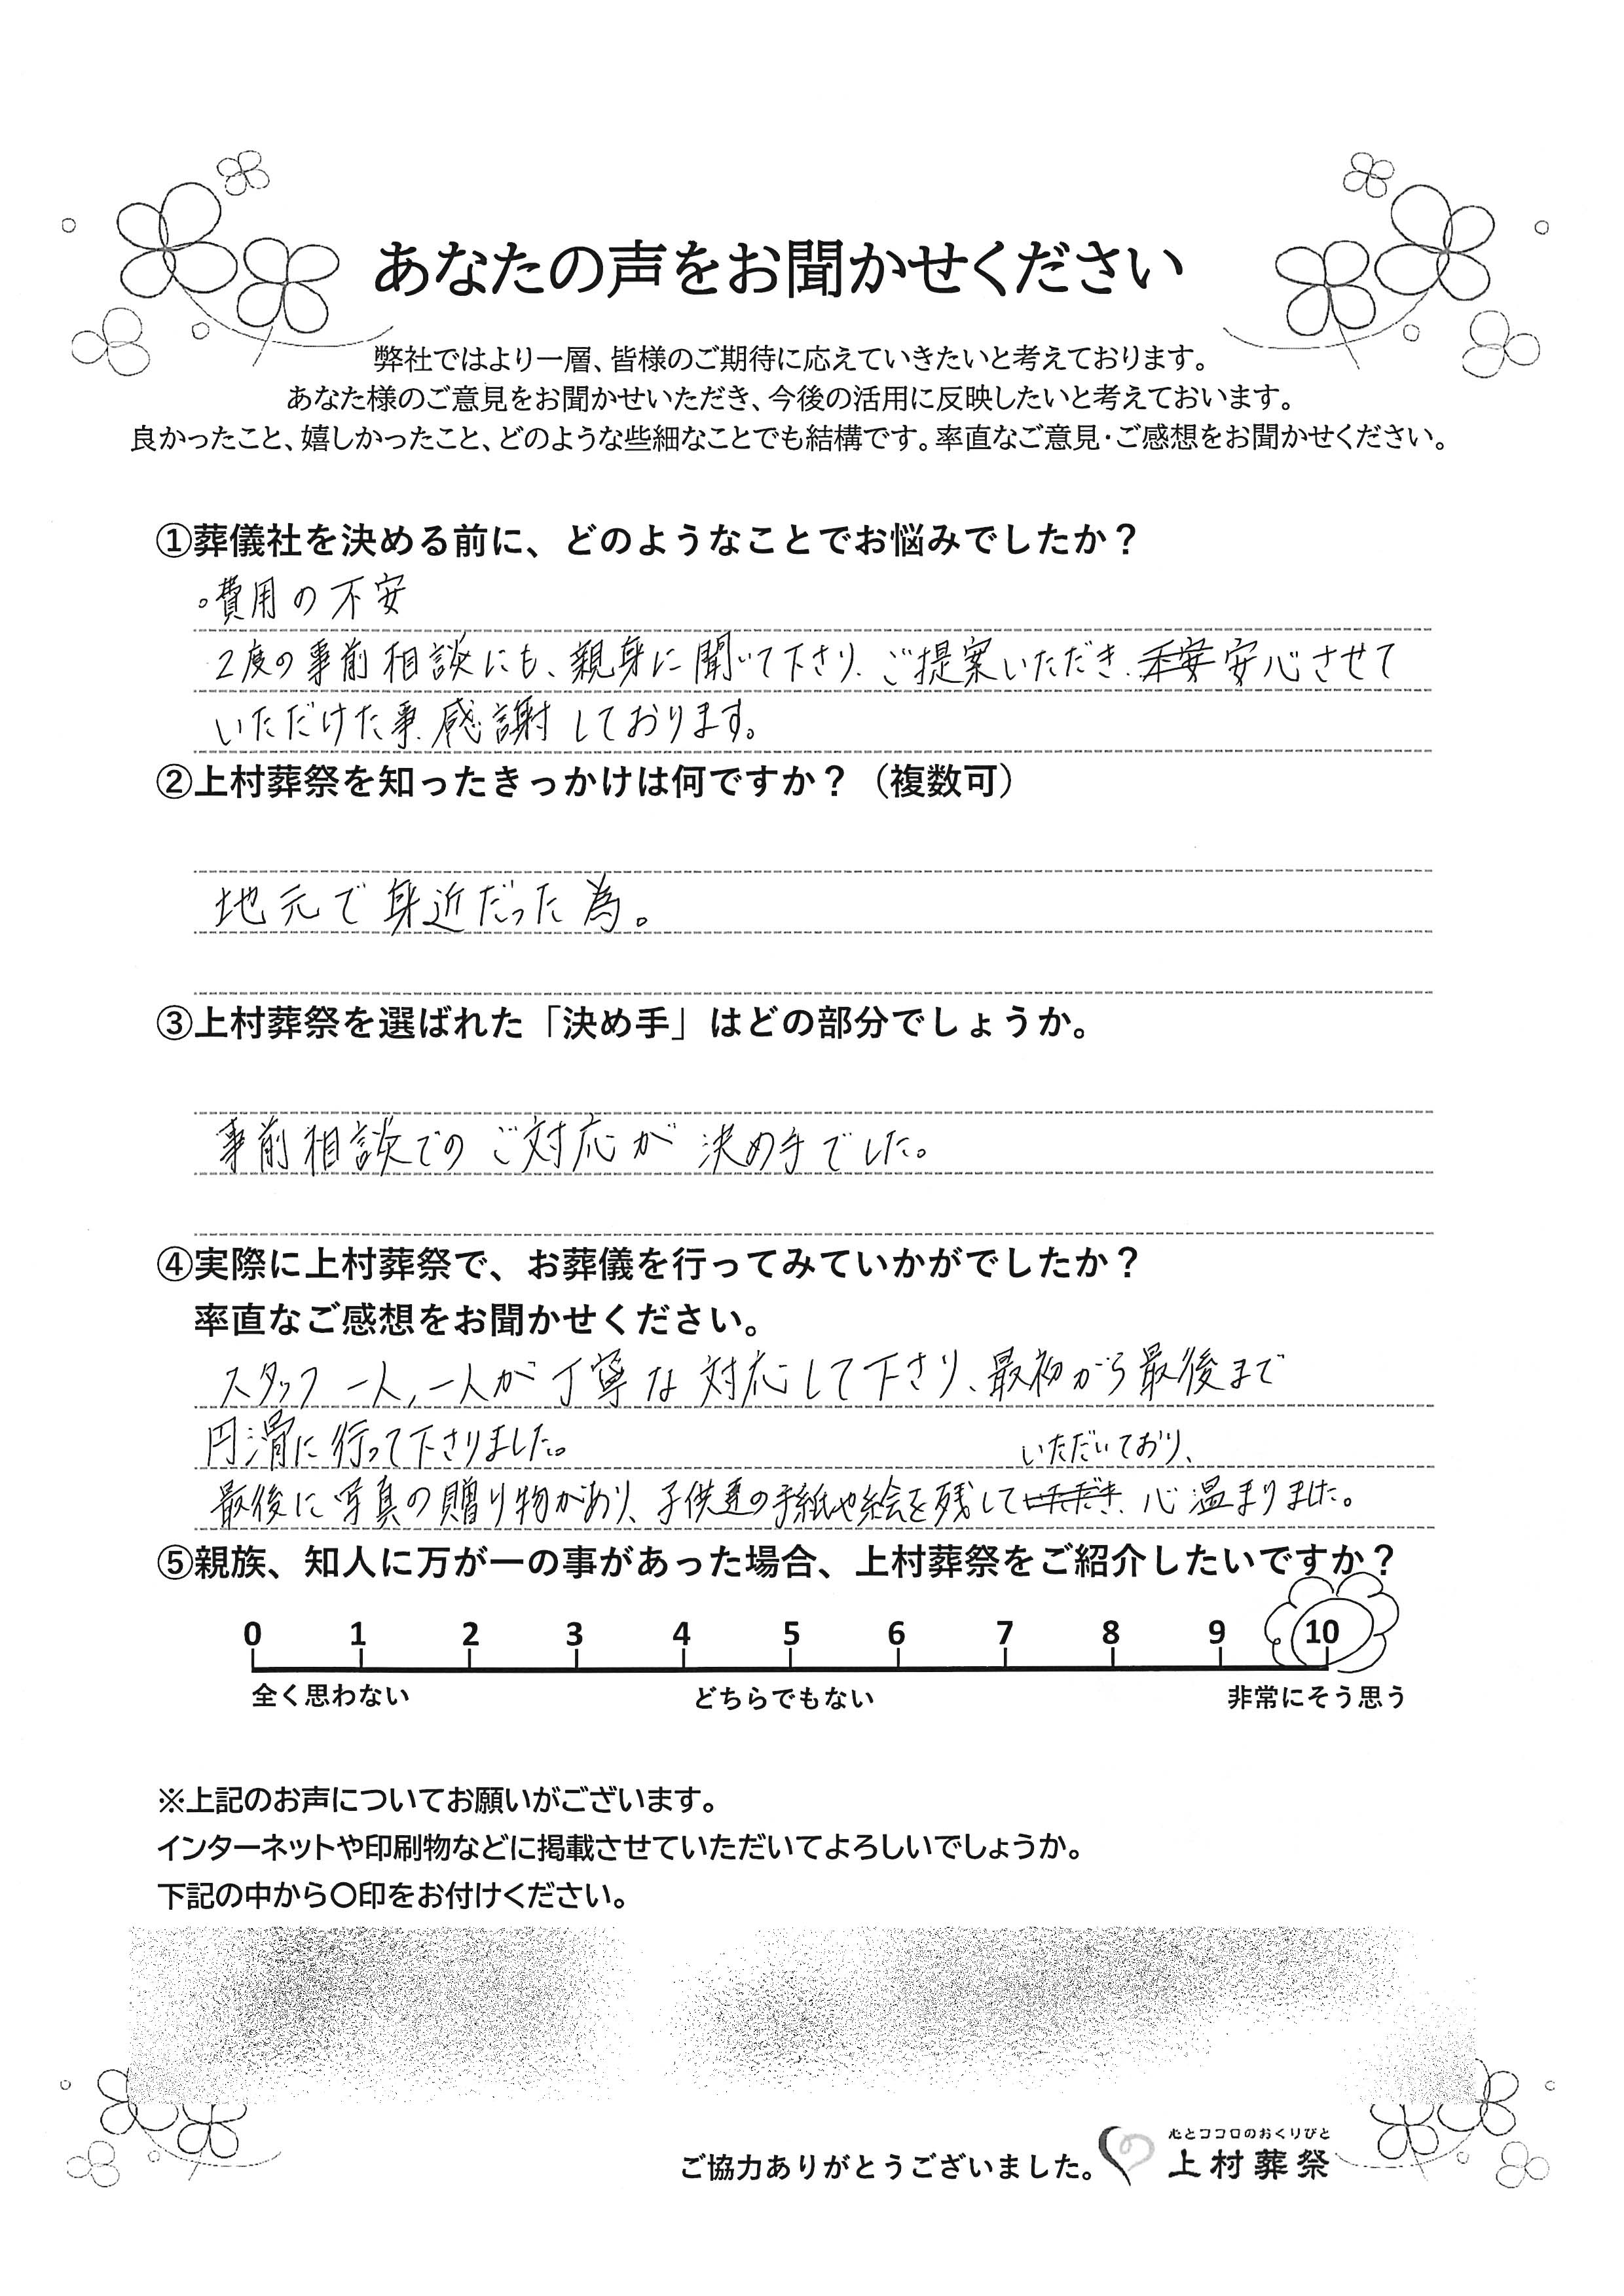 あなたの声をお聞かせください
弊社ではより一層、皆様のご期待に応えていきたいと考えております。
あなた様のご意見をお聞かせいただき、今後の活用に反映したいと考えておいます。
良かったこと、嬉しかったこと、どのような些細なことでも結構です。率直なご意見・ご感想をお聞かせください。
①葬儀社を決める前に、どのようなことでお悩みでしたか？
。費用の不安
2度の事前相談にも、親身に聞いて下さり、ご提案いただき、不安安心させて
いただけた事、感謝しております。
②上村葬祭を知ったきっかけは何ですか？（複数可）
地元で身近だった為。
③上村葬祭を選ばれた「決め手」はどの部分でしょうか。
事前相談でのご対応が決め手でした。
④実際に上村葬祭で、お葬儀を行ってみていかがでしたか？
率直なご感想をお聞かせください。
スタッフ一人、一人が丁寧な対応して下さり、最初から最後まで
円滑に行って下さりました。
いただいており、
最後に写真の贈り物があり、子供達の手紙や絵を残していただき、心温まりました。
⑤親族、知人に万が一の事があった場合、上村葬祭をご紹介したいですか？
0 1 2 3 4 5 6 7 8 9 10
全く思わない どちらでもない 非常にそう思う
※上記のお声についてお願いがございます。
インターネットや印刷物などに掲載させていただいてよろしいでしょうか。
下記の中から〇印をお付けください。
心とココロのおくりびと
ご協力ありがとうございました。 上村葬祭